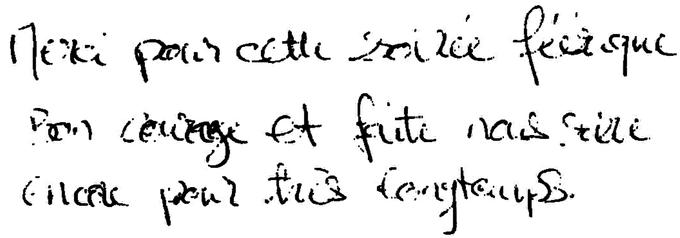 Merci pour cette soirée féérique
Bon courage et faite nous rire
encore pour très longtemps.